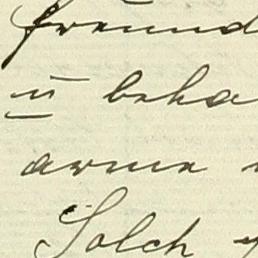 freund
u beha
arme
Solch